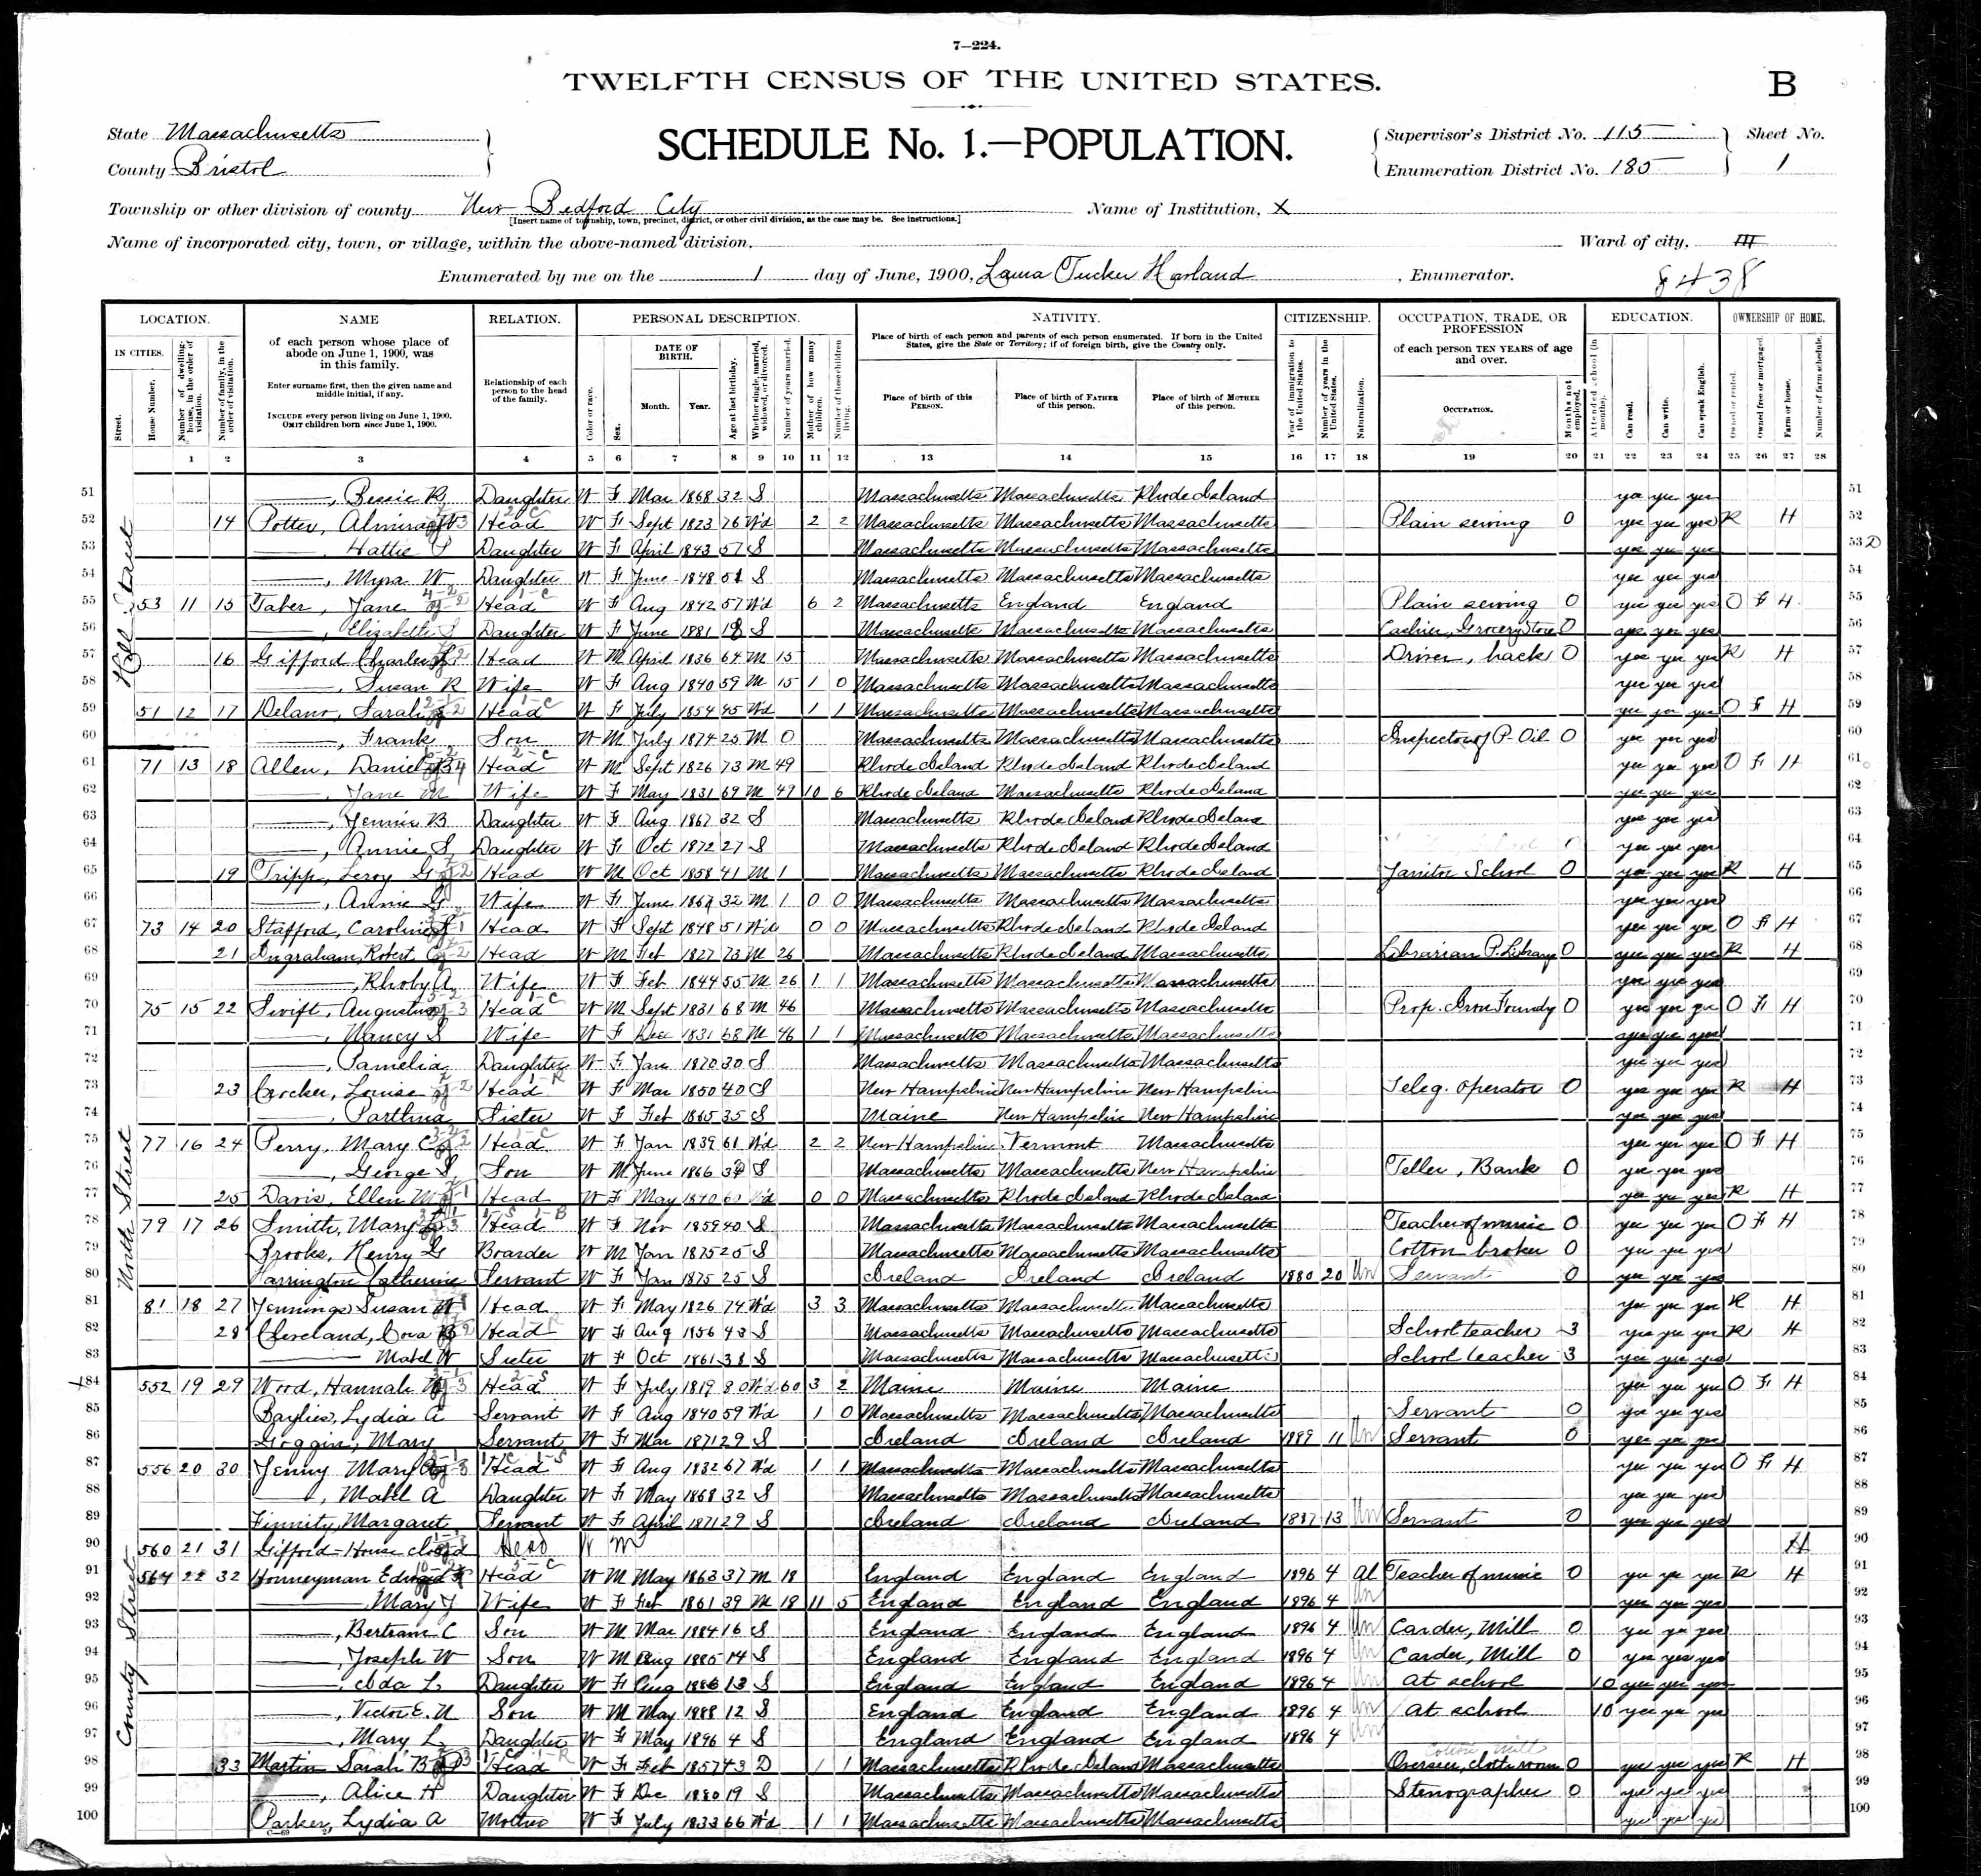 7—224.
TWELFTH CENSUS OF THE UNITED STATES.
B
State Massachusetts
County Bristol
SCHEDULE No. 1.—POPULATION.
Supervisor's District No. 115
Enumeration District No. 185
Sheet No.
1
Township or other division of county New Bedford City
[Insert name of township, town, precinct, district, or other civil division, as the case may be. See instructions.]
Name of Institution, X
Name of incorporated city, town, or village, within the above-named division,
Ward of city, III
Enumerated by me on the 1 day of June, 1900, Laura Tucker Harland, Enumerator.
8438
LOCATION. NAME RELATION. PERSONAL DESCRIPTION. NATIVITY. CITIZENSHIP. OCCUPATION, TRADE, OR PROFESSION EDUCATION. OWNERSHIP OF HOME.
IN CITIES. Street. House Number. Number of dwelling-house, in the order of visitation. Number of family, in the order of visitation.
of each person whose place of abode on June 1, 1900, was in this family.
Enter surname first, then the given name and middle initial, if any.
INCLUDE every person living on June 1, 1900.
OMIT children born since June 1, 1900.
Relationship of each person to the head of the family.
Color or race. Sex. DATE OF BIRTH. Month. Year. Age at last birthday. Whether single, married, widowed, or divorced. Number of years married. Mother of how many children. Number of these children living.
Place of birth of each person and parents of each person enumerated. If born in the United States, give the State or Territory; if of foreign birth, give the Country only.
Place of birth of this PERSON. Place of birth of FATHER of this person. Place of birth of MOTHER of this person.
Year of immigration to the United States. Number of years in the United States. Naturalization.
of each person TEN YEARS of age and over.
OCCUPATION. Months not employed.
Attended school (in months). Can read. Can write. Can speak English.
Owned or rented. Owned free or mortgaged. Farm or house. Number of farm schedule.
1 2 3 4 5 6 7 8 9 10 11 12 13 14 15 16 17 18 19 20 21 22 23 24 25 26 27 28
Hill Street
51 ——, Bessie R Daughter W F Mar 1868 32 S Massachusetts Massachusetts Rhode Island yes yes yes 51
52 14 Potter, Almira Head W F Sept 1823 76 Wd 2 2 Massachusetts Massachusetts Massachusetts Plain sewing 0 yes yes yes R H 52
53 ——, Hattie P Daughter W F April 1843 57 S Massachusetts Massachusetts Massachusetts yes yes yes 53
54 ——, Myra W Daughter W F June 1848 51 S Massachusetts Massachusetts Massachusetts yes yes yes 54
55 53 11 15 Taber, Jane Head W F Aug 1842 57 Wd 6 2 Massachusetts England England Plain sewing 0 yes yes yes O F H 55
56 ——, Elizabeth S Daughter W F June 1881 18 S Massachusetts Massachusetts Massachusetts Cashier, Grocery Store 0 yes yes yes 56
57 16 Gifford Charles Head W M April 1836 64 M 15 Massachusetts Massachusetts Massachusetts Driver, hack 0 yes yes yes R H 57
58 ——, Susan R Wife W F Aug 1840 59 M 15 1 0 Massachusetts Massachusetts Massachusetts yes yes yes 58
59 51 12 17 Delano, Sarah Head W F July 1854 45 Wd 1 1 Massachusetts Massachusetts Massachusetts yes yes yes O F H 59
60 ——, Frank Son W M July 1874 25 M 0 Massachusetts Massachusetts Massachusetts Inspector of P. Oil 0 yes yes yes 60
North Street
61 71 13 18 Allen, Daniel Head W M Sept 1826 73 M 49 Rhode Island Rhode Island Rhode Island yes yes yes O F H 61
62 ——, Jane M Wife W F May 1831 69 M 49 10 6 Rhode Island Massachusetts Rhode Island yes yes yes 62
63 ——, Jennie B Daughter W F Aug 1867 32 S Massachusetts Rhode Island Rhode Island yes yes yes 63
64 ——, Annie S Daughter W F Oct 1872 27 S Massachusetts Rhode Island Rhode Island yes yes yes 64
65 19 Tripp, Leroy G Head W M Oct 1858 41 M 1 Massachusetts Massachusetts Rhode Island Janitor School 0 yes yes yes R H 65
66 ——, Annie G Wife W F June 1867 32 M 1 0 0 Massachusetts Massachusetts Massachusetts yes yes yes 66
67 73 14 20 Stafford, Caroline Head W F Sept 1848 51 Wd 0 0 Massachusetts Rhode Island Rhode Island yes yes yes O F H 67
68 21 Ingraham, Robert C Head W M Feb 1827 73 M 26 Massachusetts Rhode Island Massachusetts Librarian P. Library 0 yes yes yes R H 68
69 ——, Rhoby A. Wife W F Feb 1844 55 M 26 1 1 Massachusetts Massachusetts Massachusetts yes yes yes 69
70 75 15 22 Swift, Augustus Head W M Sept 1831 68 M 46 Massachusetts Massachusetts Massachusetts Prop. Iron Foundry 0 yes yes yes O F H 70
71 ——, Nancy S Wife W F Dec 1831 68 M 46 1 1 Massachusetts Massachusetts Massachusetts yes yes yes 71
72 ——, Pamelia Daughter W F Jan 1870 30 S Massachusetts Massachusetts Massachusetts yes yes yes 72
73 23 Crocker, Louise Head W F Mar 1850 40 S New Hampshire New Hampshire New Hampshire Teleg. operator 0 yes yes yes R H 73
74 ——, Parthina Sister W F Feb 1865 35 S Maine New Hampshire New Hampshire yes yes yes 74
75 77 16 24 Perry, Mary C Head W F Jan 1839 61 Wd 2 2 New Hampshire Vermont Massachusetts yes yes yes O F H 75
76 ——, George S. Son W M June 1866 33 S Massachusetts Massachusetts New Hampshire Teller, Bank 0 yes yes yes 76
77 25 Davis, Ellen M Head W F May 1840 60 Wd 0 0 Massachusetts Rhode Island Rhode Island yes yes yes R H 77
78 79 17 26 Smith, Mary Head W F Nov 1859 40 S Massachusetts Massachusetts Massachusetts Teacher of music 0 yes yes yes O F H 78
79 Brooks, Henry G Boarder W M Jan 1875 25 S Massachusetts Massachusetts Massachusetts Cotton broker 0 yes yes yes 79
80 Harrington Catherine Servant W F Jan 1875 25 S Ireland Ireland Ireland 1880 20 Un Servant 0 yes yes yes 80
81 81 18 27 Jennings Susan W Head W F May 1826 74 Wd 3 3 Massachusetts Massachusetts Massachusetts yes yes yes R H 81
82 28 Cleveland, Cora B Head W F Aug 1856 43 S Massachusetts Massachusetts Massachusetts School teacher 3 yes yes yes R H 82
83 —— Mabel W Sister W F Oct 1861 38 S Massachusetts Massachusetts Massachusetts School teacher 3 yes yes yes 83
County Street
84 552 19 29 Wood, Hannah Head W F July 1819 80 Wd 60 3 2 Maine Maine Maine yes yes yes O F H 84
85 Baylies, Lydia A Servant W F Aug 1840 59 Wd 1 0 Massachusetts Massachusetts Massachusetts Servant 0 yes yes yes 85
86 Goggin, Mary Servant W F Mar 1871 29 S Ireland Ireland Ireland 1889 11 Un Servant 0 yes yes yes 86
87 556 20 30 Jenny Mary Head W F Aug 1832 67 Wd 1 1 Massachusetts Massachusetts Massachusetts yes yes yes O F H 87
88 ——, Mabel A Daughter W F May 1868 32 S Massachusetts Massachusetts Massachusetts yes yes yes 88
89 Finnity, Margaret Servant W F April 1871 29 S Ireland Ireland Ireland 1887 13 Un Servant 0 yes yes yes 89
90 560 21 31 Gifford–House closed Head W M H 90
91 564 22 32 Honneyman Edward Head W M May 1863 37 M 18 England England England 1896 4 Al Teacher of music 0 yes yes yes R H 91
92 ——, Mary J Wife W F Feb 1861 39 M 18 11 5 England England England 1896 4 Un yes yes yes 92
93 ——, Bertram C Son W M Mar 1884 16 S England England England 1896 4 Un Carder, Mill 0 yes yes yes 93
94 ——, Joseph W Son W M Aug 1885 14 S England England England 1896 4 Un Carder, Mill 0 yes yes yes 94
95 ——, Ida L. Daughter W F Aug 1886 13 S England England England 1896 4 Un at school 10 yes yes yes 95
96 ——, Victor E. N Son W M May 1888 12 S England England England 1896 4 Un at school 10 yes yes yes 96
97 ——, Mary L. Daughter W F May 1896 4 S England England England 1896 4 Un 97
98 33 Martin Sarah B Head W F Feb 1857 43 D 1 1 Massachusetts Rhode Island Massachusetts Cotton Mill Overseer, cloth room 0 yes yes yes R H 98
99 ——, Alice H Daughter W F Dec 1880 19 S Massachusetts Massachusetts Massachusetts Stenographer 0 yes yes yes 99
100 Parker, Lydia A Mother W F July 1833 66 Wd 1 1 Massachusetts Massachusetts Massachusetts yes yes yes 100